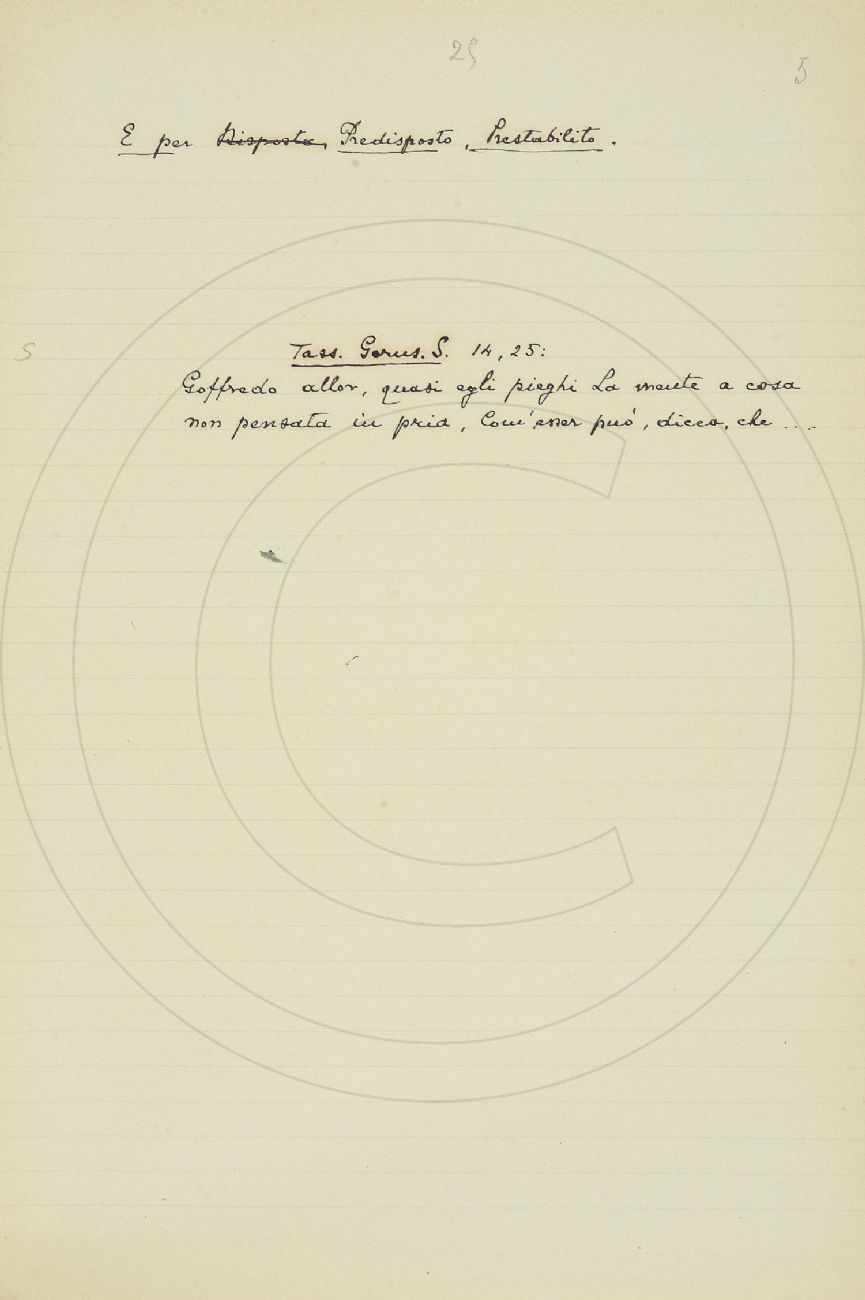 25
5
E per Disposto, Predisposto, Prestabilito.
S
Tass. Gerus. S. 14, 25:
Goffredo allor, quasi egli pieghi La mente a cosa
non pensata in pria, Com'esser può, dicea, che ....